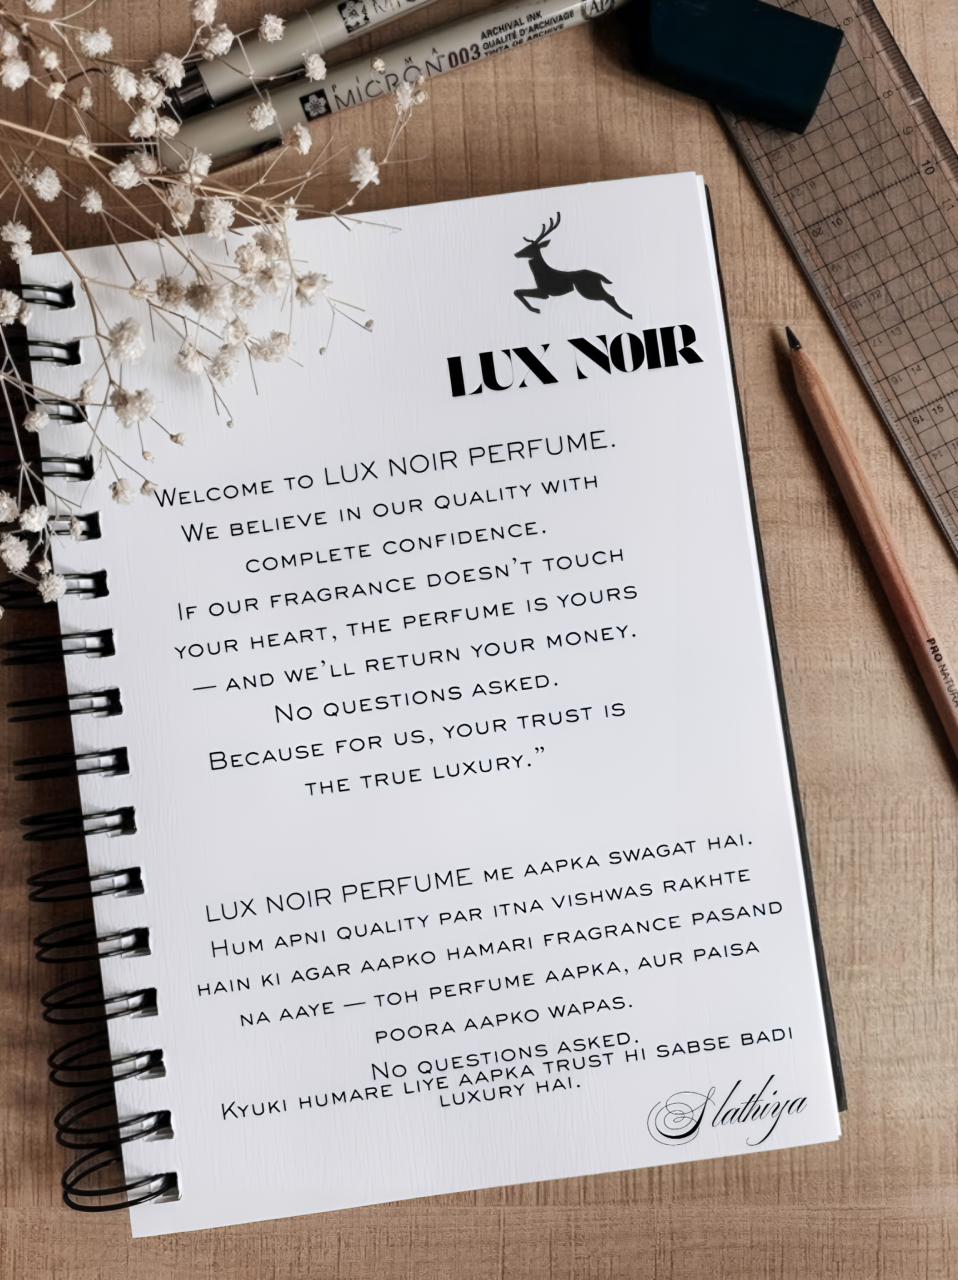 MICRON 003 ARCHIVAL INK
QUALITÉ D'ARCHIVAGE
TINTA DE ARCHIVE
LUX NOIR
WELCOME TO LUX NOIR PERFUME.
WE BELIEVE IN OUR QUALITY WITH
COMPLETE CONFIDENCE.
IF OUR FRAGRANCE DOESN'T TOUCH
YOUR HEART, THE PERFUME IS YOURS
— AND WE'LL RETURN YOUR MONEY.
NO QUESTIONS ASKED.
BECAUSE FOR US, YOUR TRUST IS
THE TRUE LUXURY.”
LUX NOIR PERFUME ME AAPKA SWAGAT HAI.
HUM APNI QUALITY PAR ITNA VISHWAS RAKHTE
HAIN KI AGAR AAPKO HAMARI FRAGRANCE PASAND
NA AAYE — TOH PERFUME AAPKA, AUR PAISA
POORA AAPKO WAPAS.
NO QUESTIONS ASKED.
KYUKI HUMARE LIYE AAPKA TRUST HI SABSE BADI
LUXURY HAI.
Slathiya
PRO NATURA